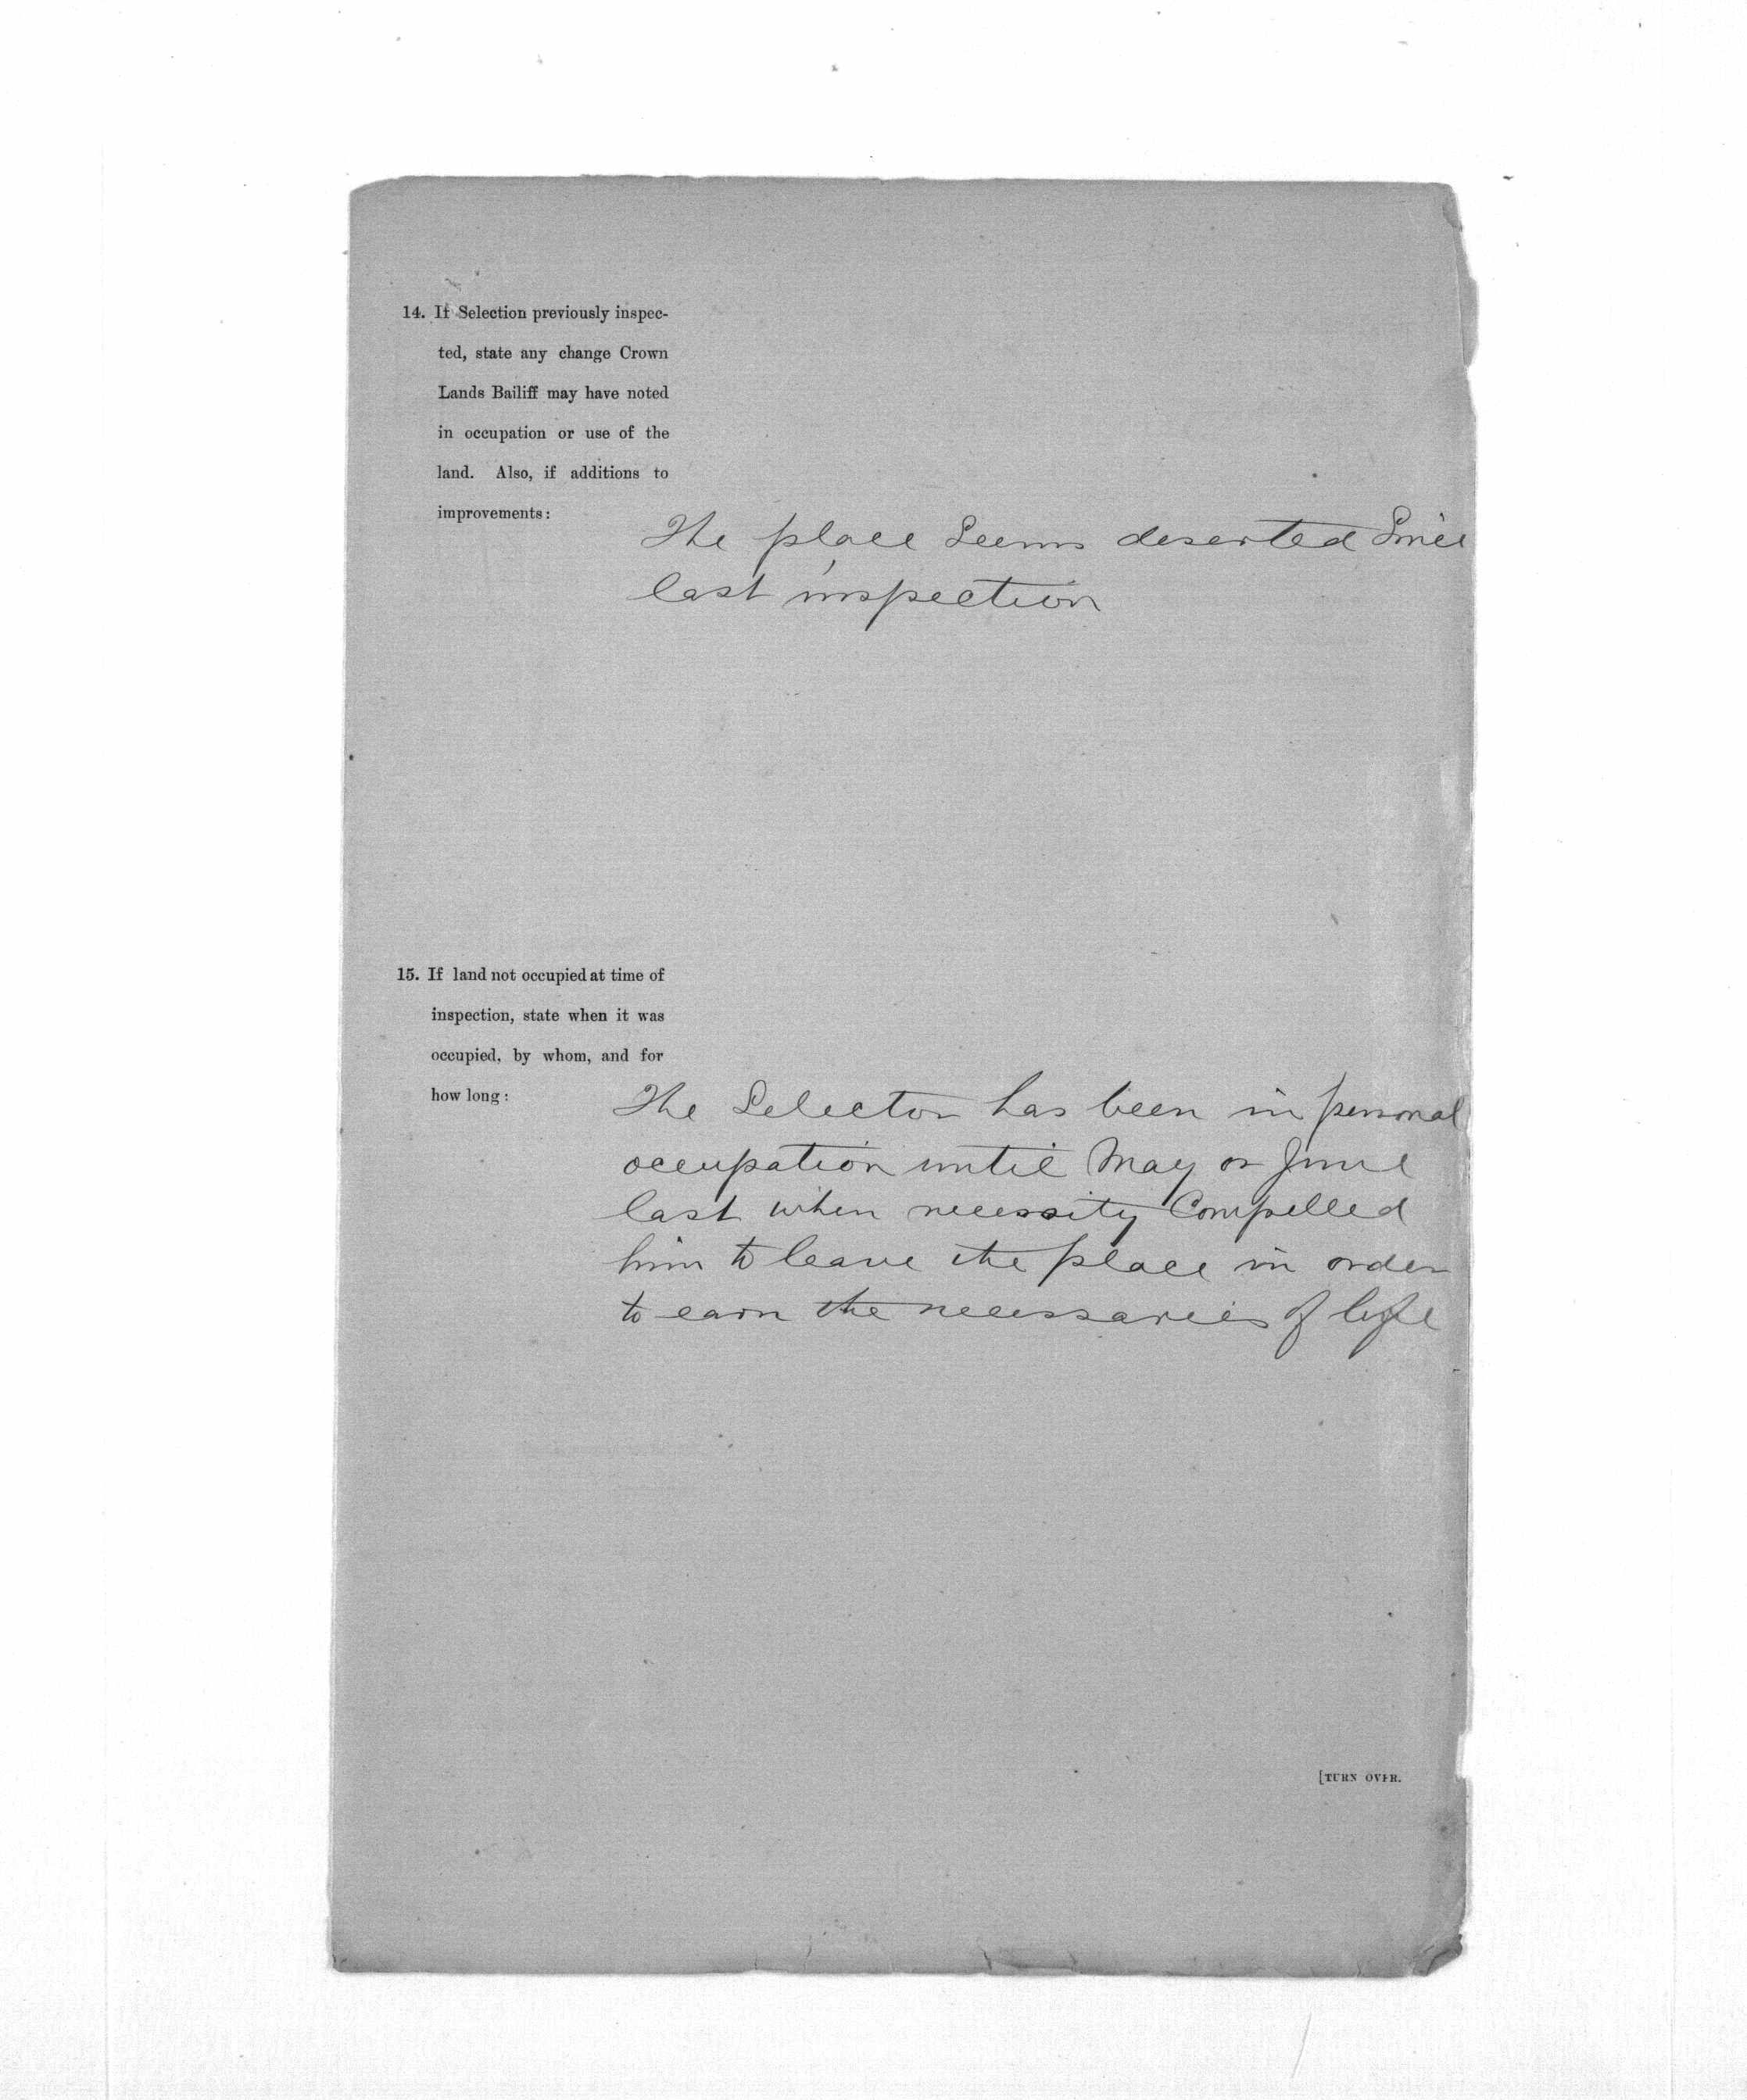 14. If Selection previously inspec-
ted, state any change Crown
Lands Bailiff may have noted
in occupation or use of the
land. Also, if additions to
improvements:
The place Seems deserted Since
last inspection
15. If land not occupied at time of
inspection, state when it was
occupied, by whom, and for
how long:
The Selector has been in personal
occupation until May or June
last when necessity Compelled
him to leave the place in order
to earn the necessaries of life
[TURN OVER.